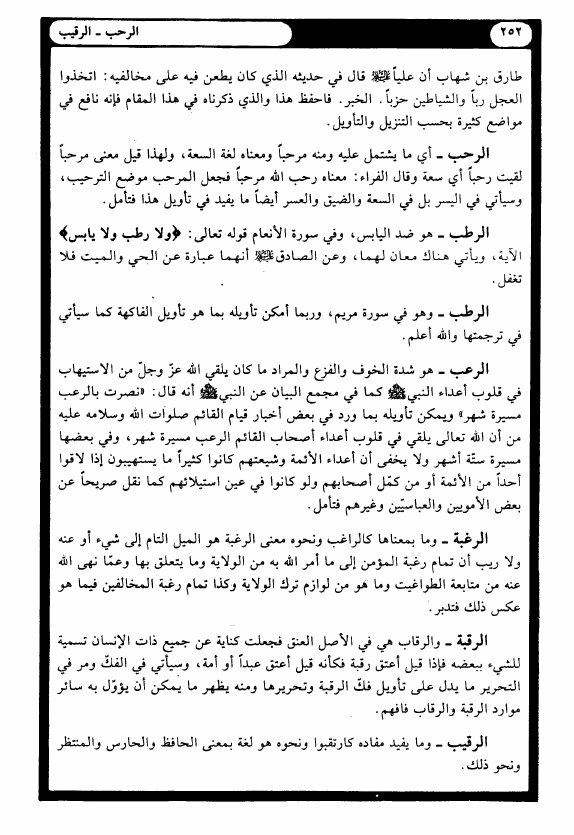 ٢٥٢
الرحب ــ الرقيب
طارق بن شهاب أن علياً ﷺ قال في حديثه الذي كان يطعن فيه على مخالفيه: اتخذوا
العجل رباً والشياطين حزباً. الخبر. فاحفظ هذا والذي ذكرناه في هذا المقام فإنه نافع في
مواضع كثيرة بحسب التنزيل والتأويل.
الرحب ــ أي ما يشتمل عليه ومنه مرحباً ومعناه لغة السعة، ولهذا قيل معنى مرحباً
لقيت رحباً أي سعة وقال الفراء: معناه رحب الله مرحباً فجعل المرحب موضع الترحيب،
وسيأتي في اليسر بل في السعة والضيق والعسر أيضاً ما يفيد في تأويل هذا فتأمل.
الرطب ــ هو ضد اليابس، وفي سورة الأنعام قوله تعالى: ﴿ولا رطب ولا يابس﴾
الآية، ويأتي هناك معان لهما، وعن الصادق ﷺ أنهما عبارة عن الحي والميت فلا
تغفل.
الرطب ــ وهو في سورة مريم، وربما أمكن تأويله بما هو تأويل الفاكهة كما سيأتي
في ترجمتها والله أعلم.
الرعب ــ هو شدة الخوف والفزع والمراد ما كان يلقي الله عزّ وجلّ من الاستيهاب
في قلوب أعداء النبي ﷺ كما في مجمع البيان عن النبي ﷺ أنه قال: «نصرت بالرعب
مسيرة شهر» ويمكن تأويله بما ورد في بعض أخبار قيام القائم صلوات الله وسلامه عليه
من أن الله تعالى يلقي في قلوب أعداء أصحاب القائم الرعب مسيرة شهر، وفي بعضها
مسيرة ستّة أشهر ولا يخفى أن أعداء الأئمة وشيعتهم كانوا كثيراً ما يستهيبون إذا لاقوا
أحداً من الأئمة أو من كمّل أصحابهم ولو كانوا في عين استيلائهم كما نقل صريحاً عن
بعض الأمويين والعباسيّين وغيرهم فتأمل.
الرغبة ــ وما بمعناها كالراغب ونحوه معنى الرغبة هو الميل التام إلى شيء أو عنه
ولا ريب أن تمام رغبة المؤمن إلى ما أمر الله به من الولاية وما يتعلق بها وعمّا نهى الله
عنه من متابعة الطواغيت وما هو من لوازم ترك الولاية وكذا تمام رغبة المخالفين فيما هو
عكس ذلك فتدبر.
الرقبة ــ والرقاب هي في الأصل العنق فجعلت كناية عن جميع ذات الإنسان تسمية
للشيء ببعضه فإذا قيل أعتق رقبة فكأنه قيل أعتق عبداً أو أمة، وسيأتي في الفكّ ومر في
التحرير ما يدل على تأويل فكّ الرقبة وتحريرها ومنه يظهر ما يمكن أن يؤوّل به سائر
موارد الرقبة والرقاب فافهم.
الرقيب ــ وما يفيد مفاده كارتقبوا ونحوه هو لغة بمعنى الحافظ والحارس والمنتظر
ونحو ذلك.